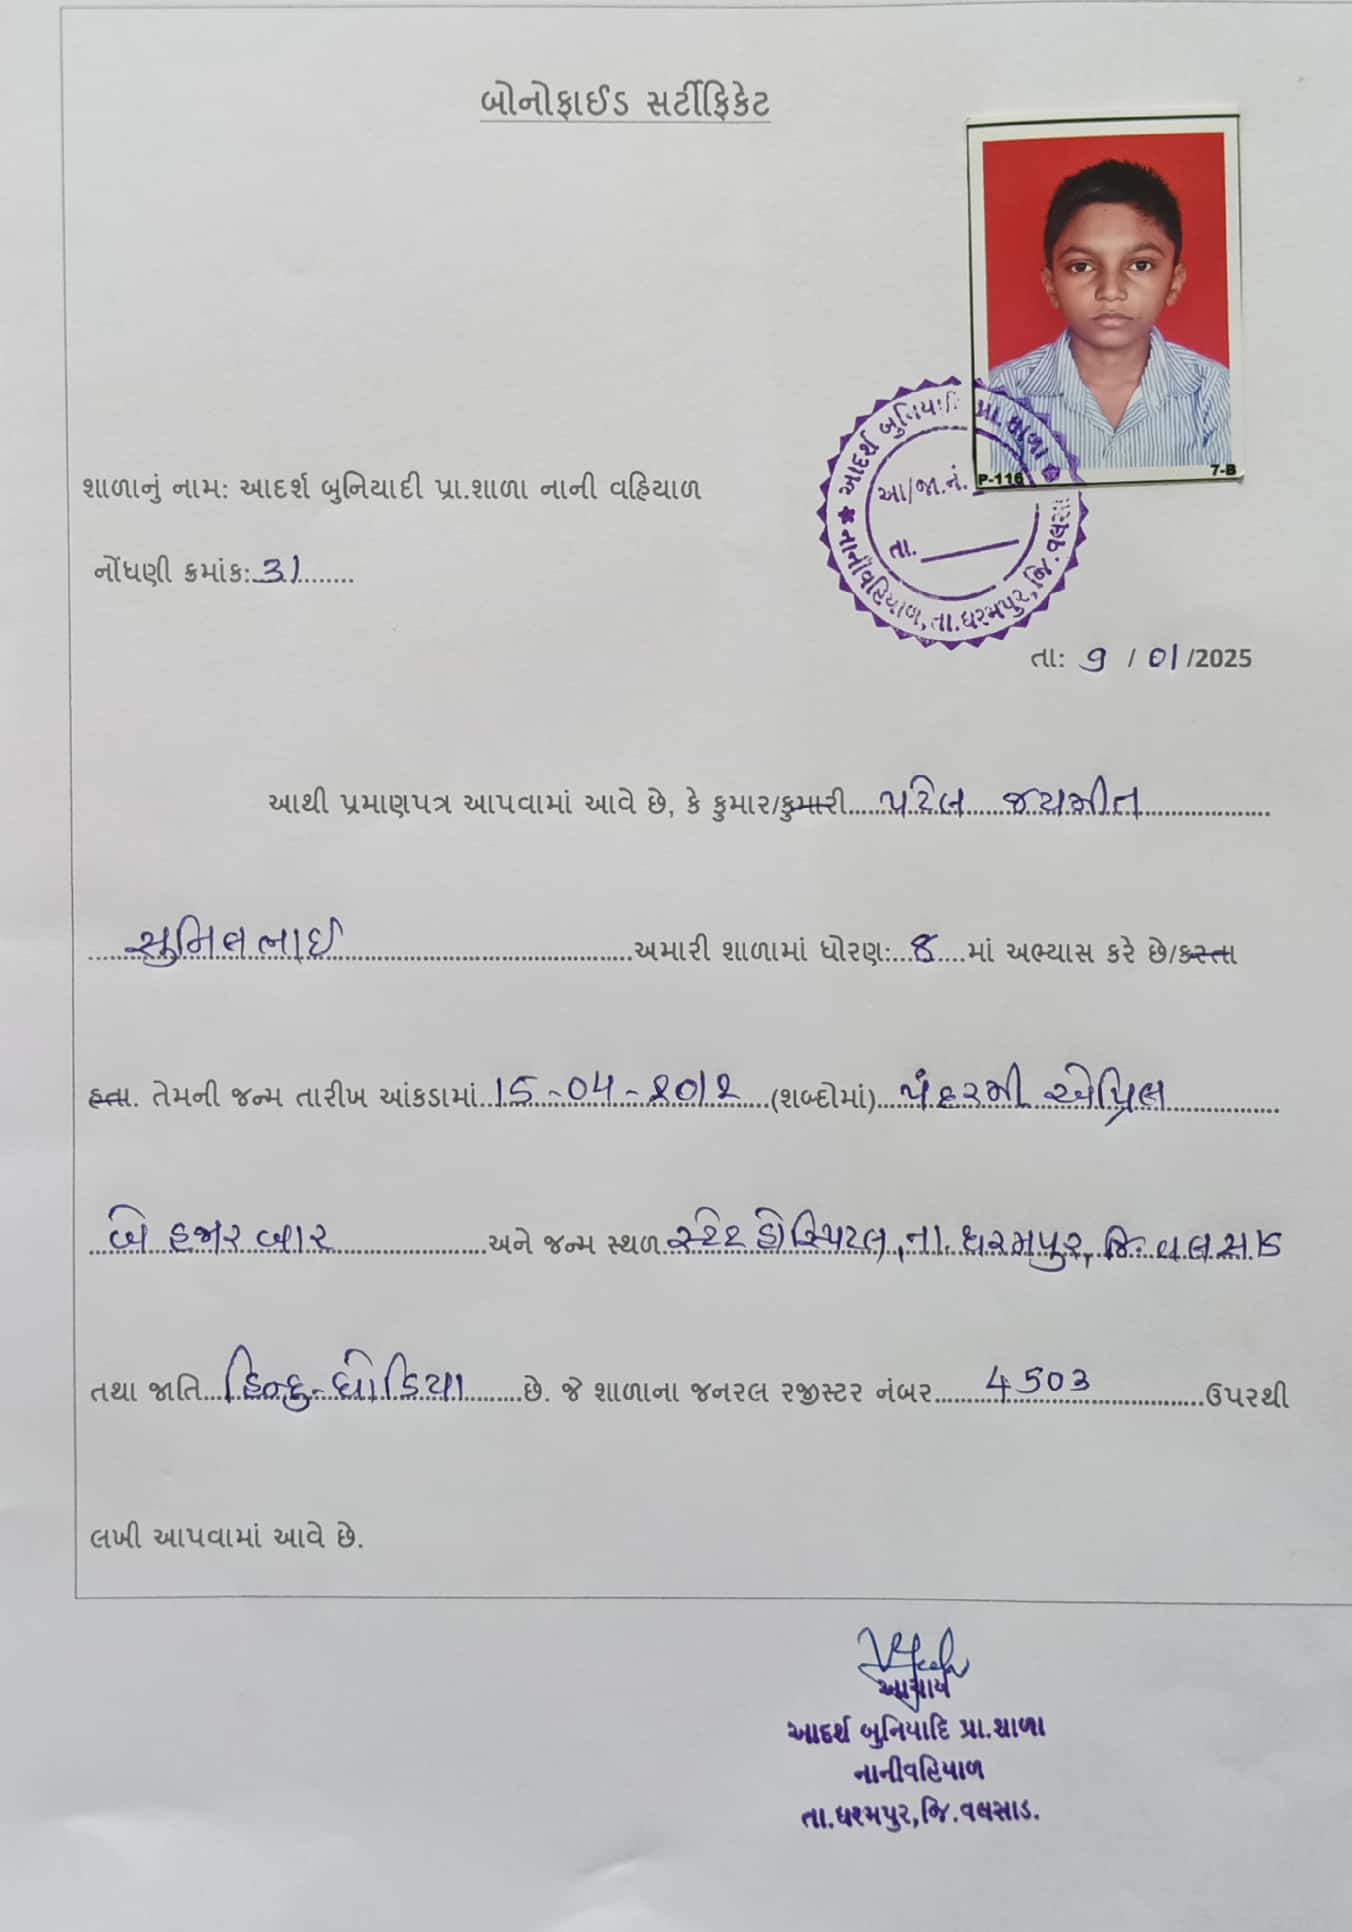 બોનોફાઈડ સર્ટીફિકેટ
P-116
7-B
આદર્શ બુનિયાદિ પ્રા. શાળા
આ/જા.નં.
તા.
નાનીવહિયાળ, તા.ધરમપુર, જિ.વલસા
શાળાનું નામ: આદર્શ બુનિયાદી પ્રા.શાળા નાની વહિયાળ
નોંધણી ક્રમાંક: 31
તા: 9 / 01 /2025
આથી પ્રમાણપત્ર આપવામાં આવે છે, કે કુમાર/કુમારી પટેલ જયમીત
સુનિલભાઈ અમારી શાળામાં ધોરણ: 8 માં અભ્યાસ કરે છે/કરતા
હતા. તેમની જન્મ તારીખ આંકડામાં 15-04-2012 (શબ્દોમાં) પંદરમી એપ્રિલ
બે હજાર બાર અને જન્મ સ્થળ સ્ટેટ હોસ્પિટલ, તા. ધરમપુર, જિ. વલસાડ
તથા જાતિ હિન્દુ-ધોડિયા છે. જે શાળાના જનરલ રજીસ્ટર નંબર 4503 ઉપરથી
લખી આપવામાં આવે છે.
આચાર્ય
આદર્શ બુનિયાદિ પ્રા.શાળા
નાનીવહિયાળ
તા.ધરમપુર,જિ.વલસાડ.